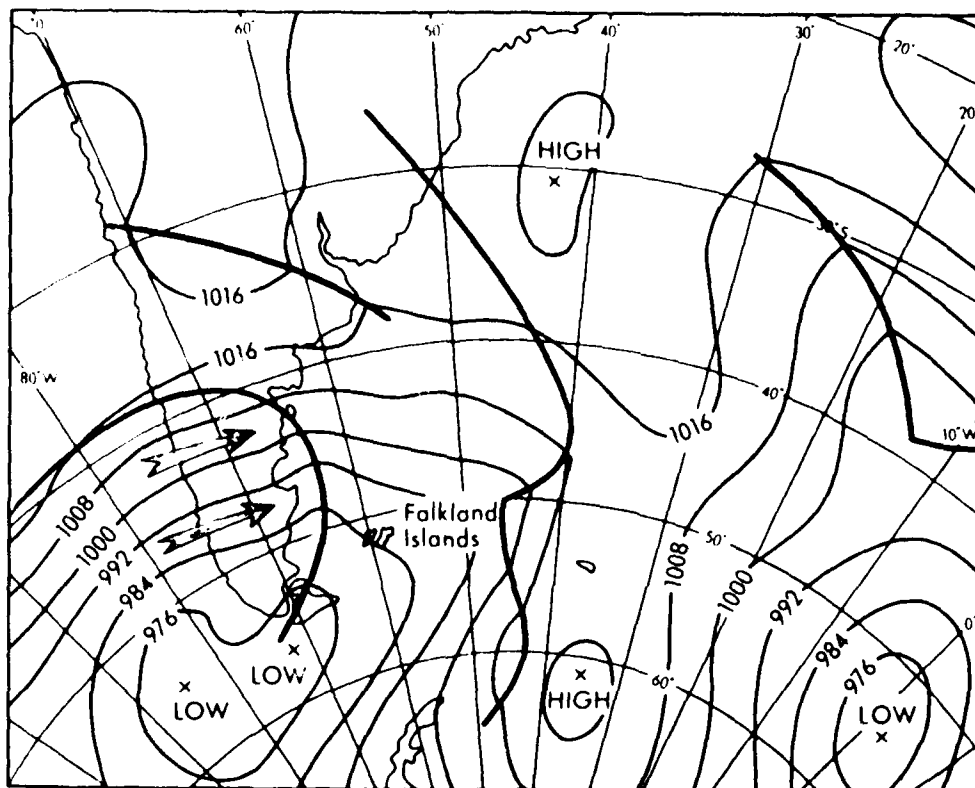 60°
50°
40°
30°
20°
20
HIGH
30°S
1016
1016
80°W
40°
1016
10°W
1008
1000
992
984
976
Falkland
Islands
50°
1008
1000
992
984
976
0°
60°
LOW
LOW
HIGH
LOW